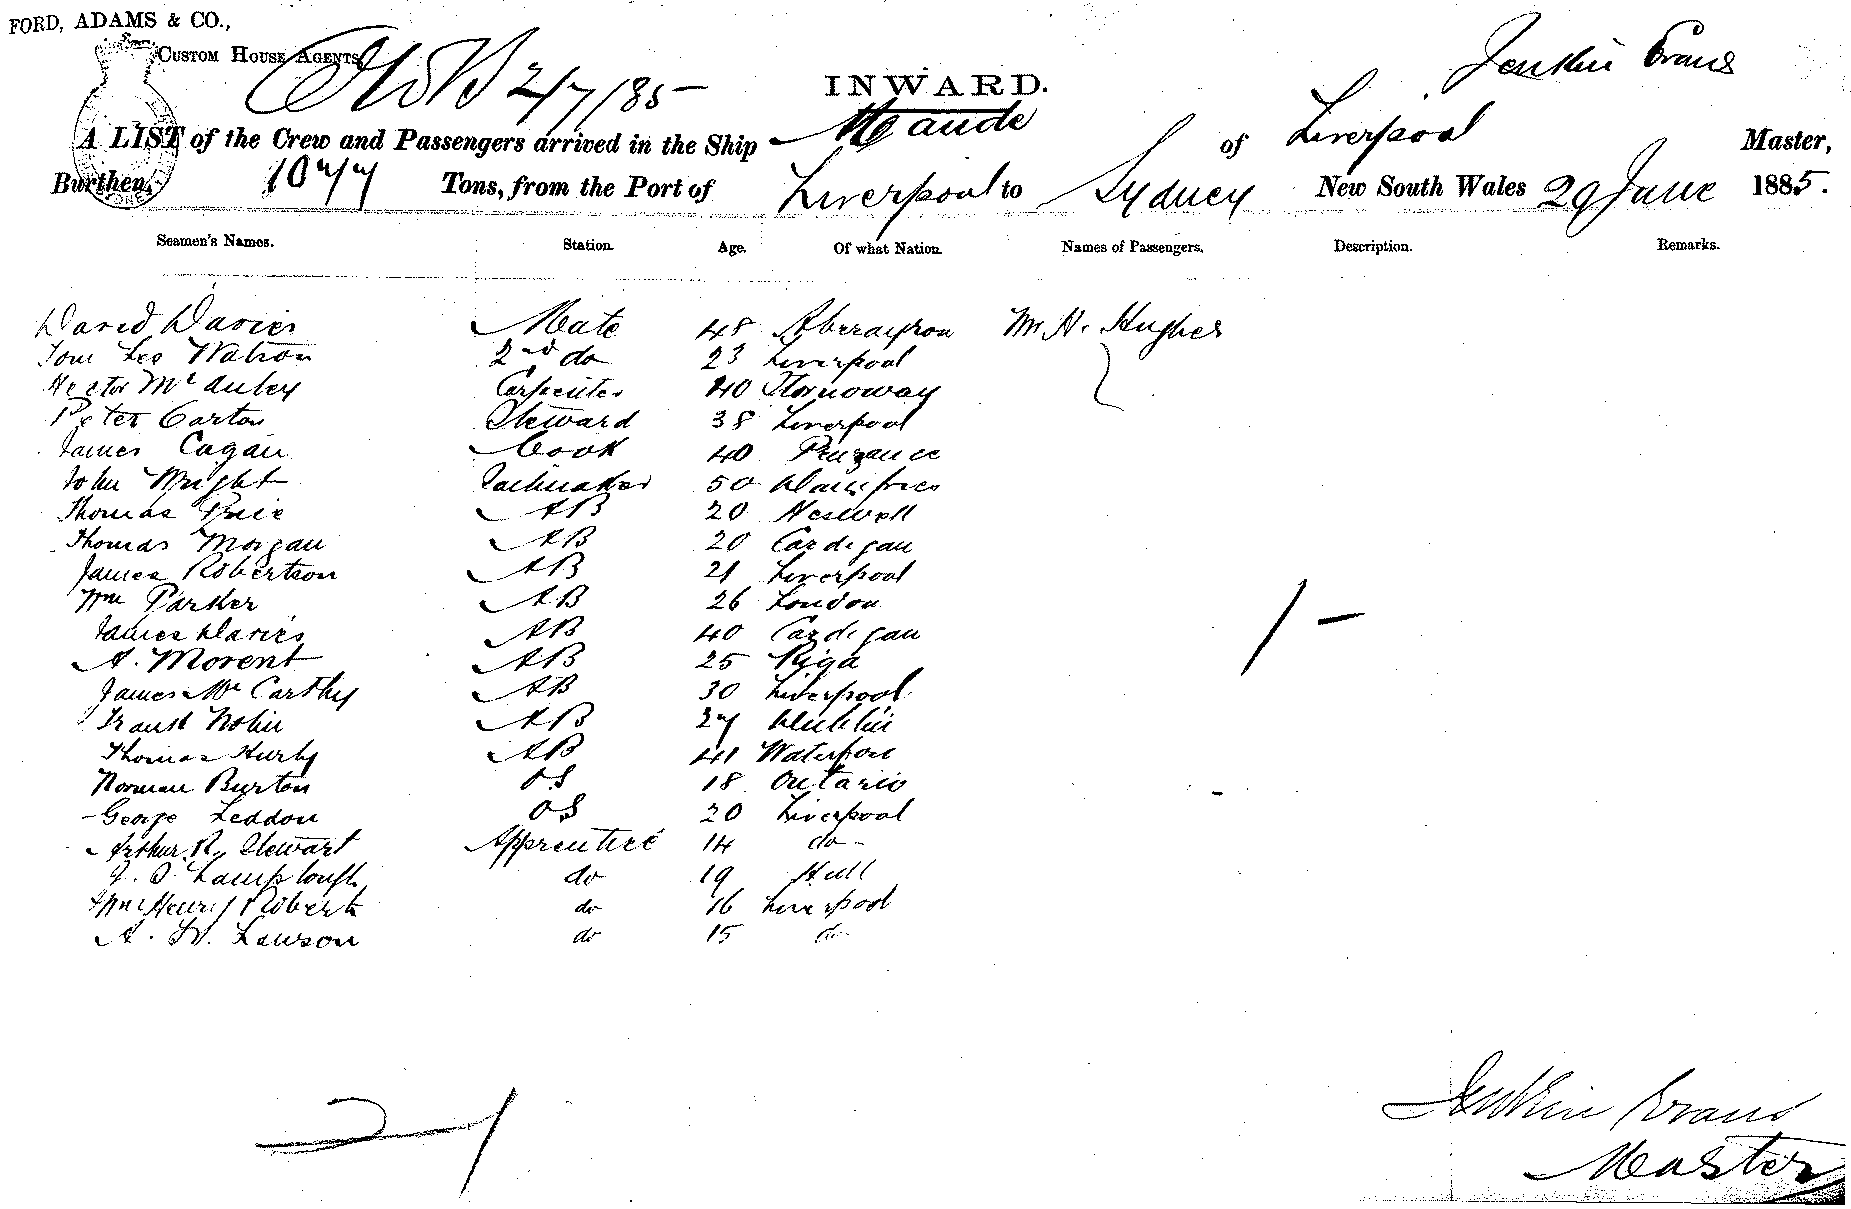 FORD, ADAMS & CO.,
CUSTOM HOUSE AGENTS
2/7/85
INWARD.
Jenkin Evans
A LIST of the Crew and Passengers arrived in the Ship Maude of Liverpool Master,
Burthen, 1077 Tons, from the Port of Liverpool to Sydney New South Wales 29 June 1885.
Seamen's Names. Station. Age. Of what Nation. Names of Passengers. Description. Remarks.
David Davies Mate 48 Aberayron Mr H. Hughes
Tom Lee Watson 2nd do 23 Liverpool
Hector Mc Carpenter 40 Stornoway
Peter Carton Steward 38 Liverpool
James Cagan Cook 40 Penzance
John Wright Sailmaker 50 Dumfries
Thomas Price AB 20
Thomas Morgan AB 20 Cardigan
James Robertson AB 21 Liverpool
Wm Parker AB 26 London
James Davies AB 40 Cardigan
A. Morent AB 25 Riga
James Mc Carthy AB 30 Liverpool
Frank AB 27 Dublin
Thomas Hurly AB 41
Norman Burton OS 18 Ontario
George Leddon OS 20 Liverpool
Arthur R. Stewart Apprentice 14 do
Lamplough do 19 Hull
Wm Henry Roberts do 16 Liverpool
A. W. Lawson do 15 do
1 -
21
Jenkin Evans
Master